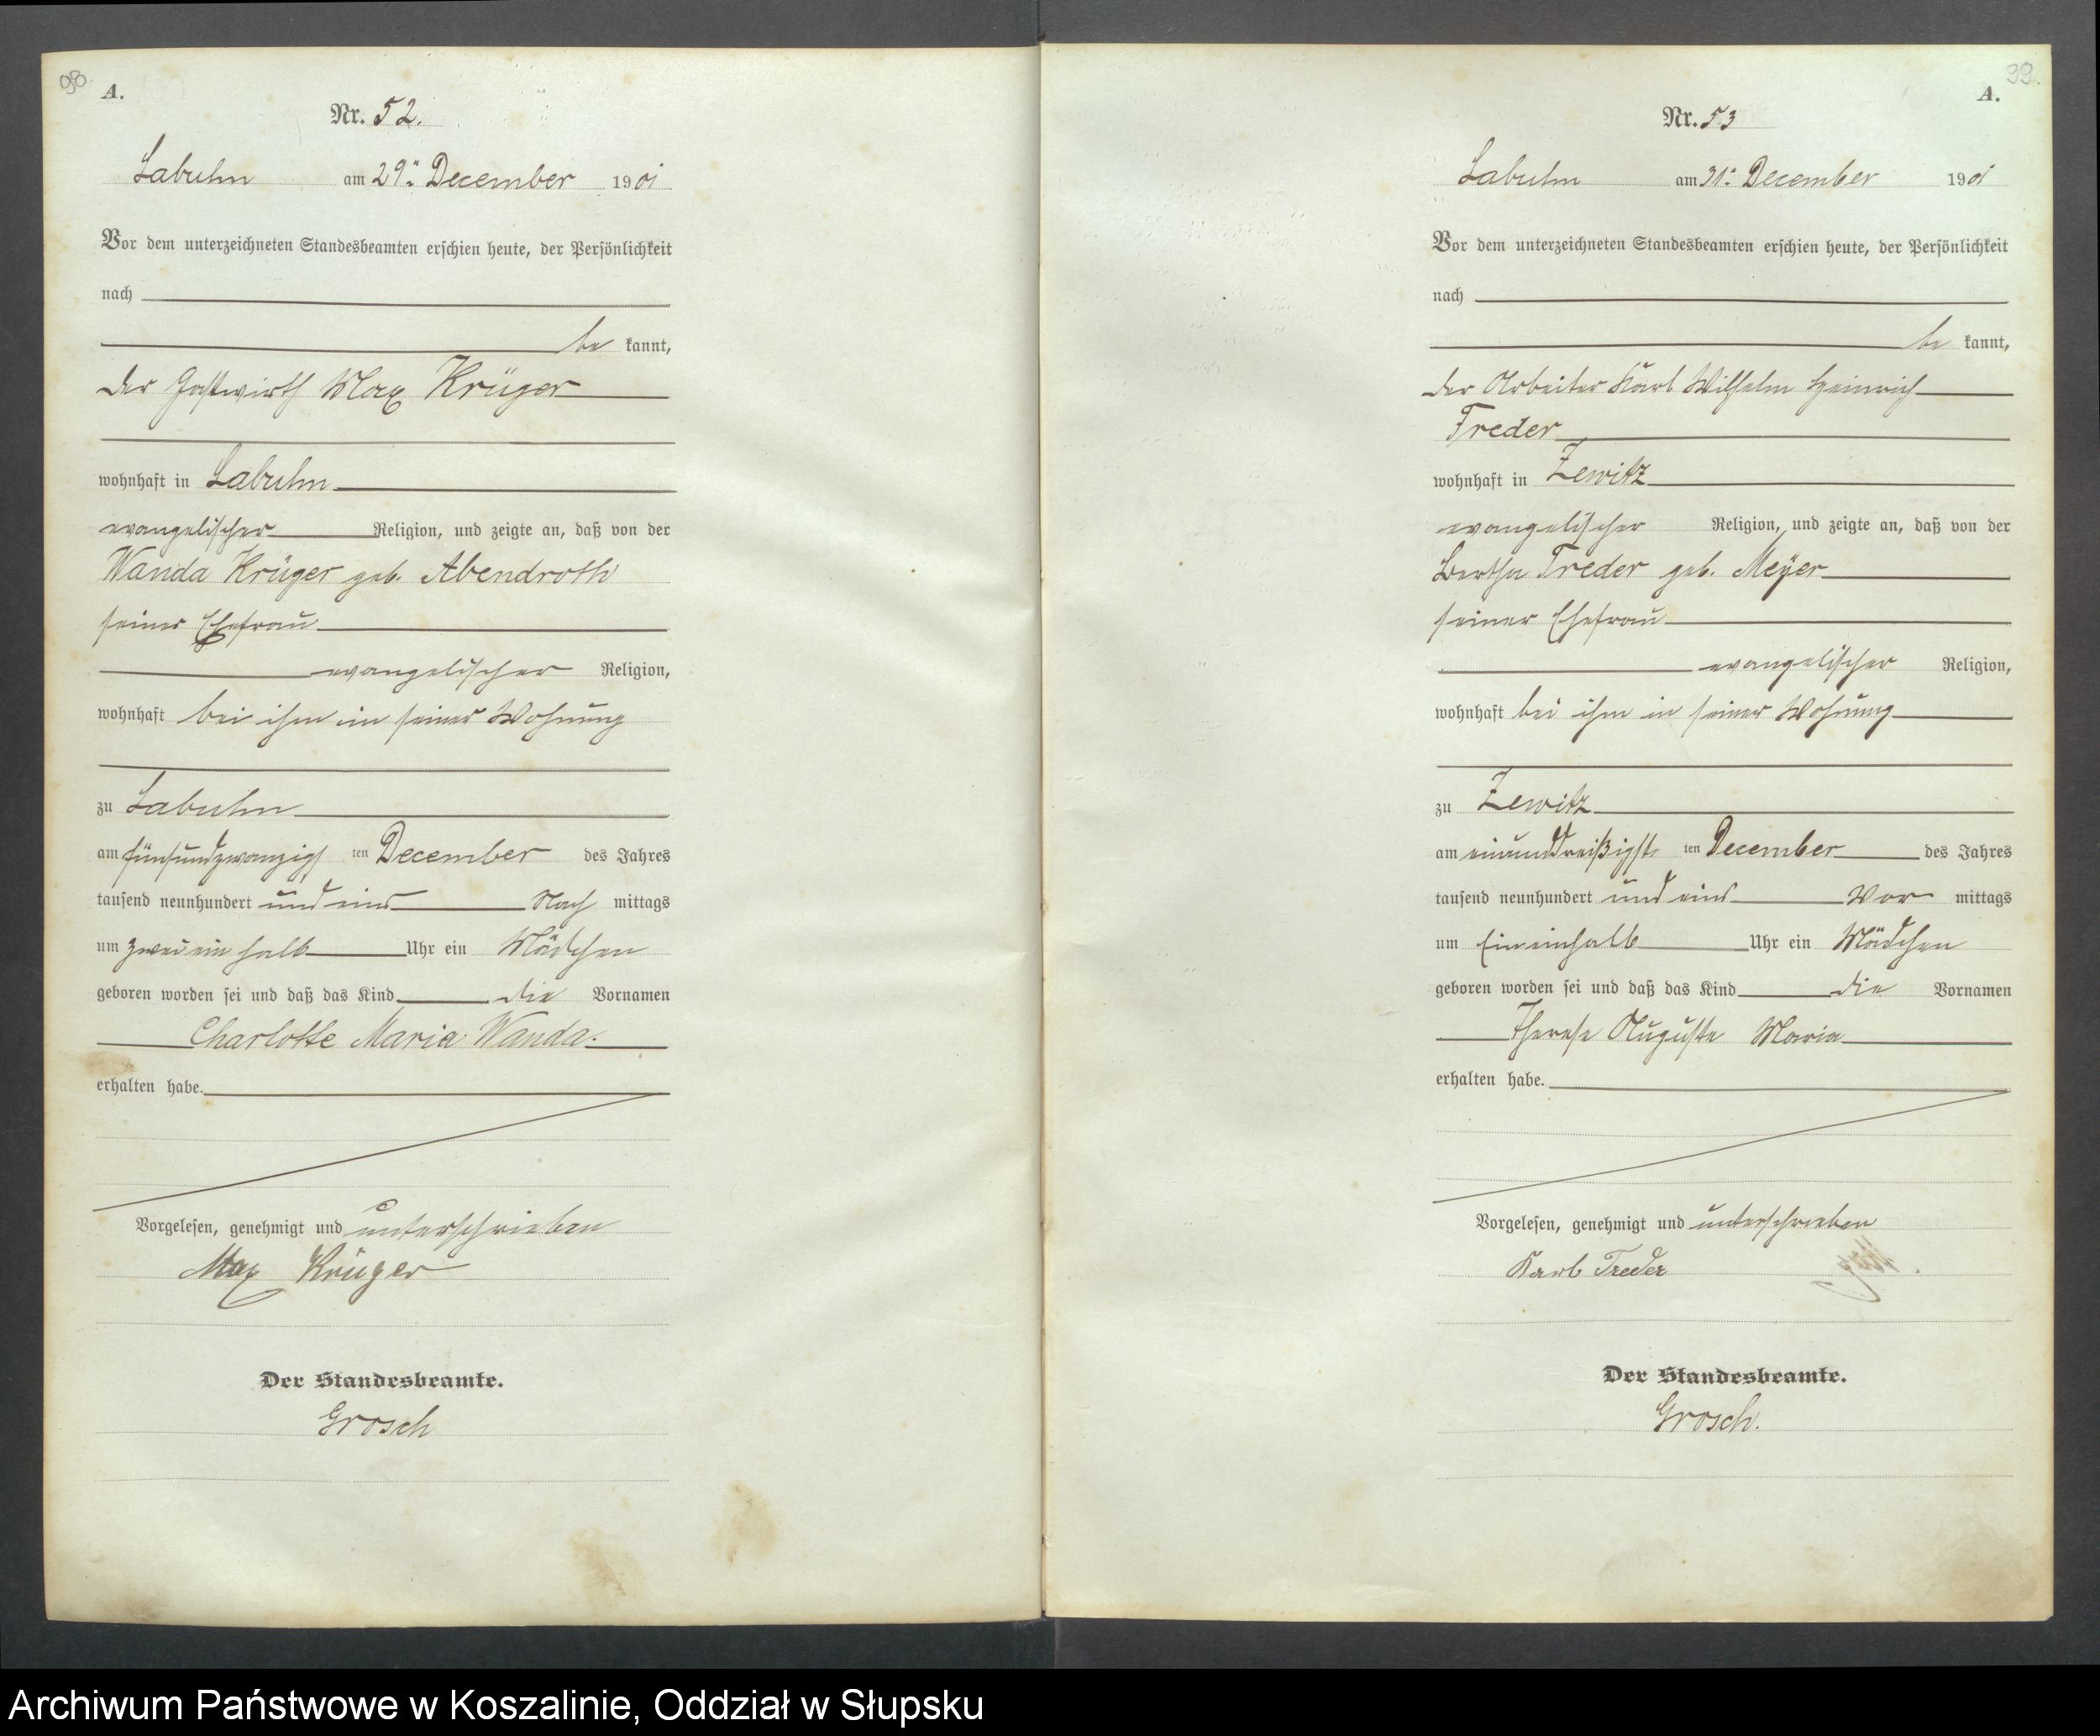 98
A.
Nr. 52.
Labuhn am 29ten December 1901
Vor dem unterzeichneten Standesbeamten erschien heute, der Persönlichkeit
nach
be kannt,
der Gastwirth Max Krüger
wohnhaft in Labuhn
evangelischer Religion, und zeigte an, daß von der
Wanda Krüger geb. Abendroth
seiner Ehefrau
evangelischer Religion,
wohnhaft bei ihm in seiner Wohnung
zu Labuhn
am fünfundzwanzigs ten December des Jahres
tausend neunhundert und eins Nach mittags
um zwei ein halb Uhr ein Mädchen
geboren worden sei und daß das Kind die Vornamen
Charlotte Maria Wanda.
erhalten habe.
Vorgelesen, genehmigt und unterschrieben
Max Krüger
Der Standesbeamte.
Grosch
99.
A.
Nr. 53
Labuhn am 31ten December 1901
Vor dem unterzeichneten Standesbeamten erschien heute, der Persönlichkeit
nach
be kannt,
der Arbeiter Karl Wilhelm Heinrich
Treder
wohnhaft in Zewitz
evangelischer Religion, und zeigte an, daß von der
Bertha Treder geb. Meyer
seiner Ehefrau
evangelischer Religion,
wohnhaft bei ihm in seiner Wohnung
zu Zewitz
am einunddreißigste ten December des Jahres
tausend neunhundert und eins Vor mittags
um Eineinhalb Uhr ein Mädchen
geboren worden sei und daß das Kind die Vornamen
Therese Auguste Maria
erhalten habe.
Vorgelesen, genehmigt und unterschrieben
Karl Treder
Der Standesbeamte.
Grosch.
Archiwum Państwowe w Koszalinie, Oddział w Słupsku